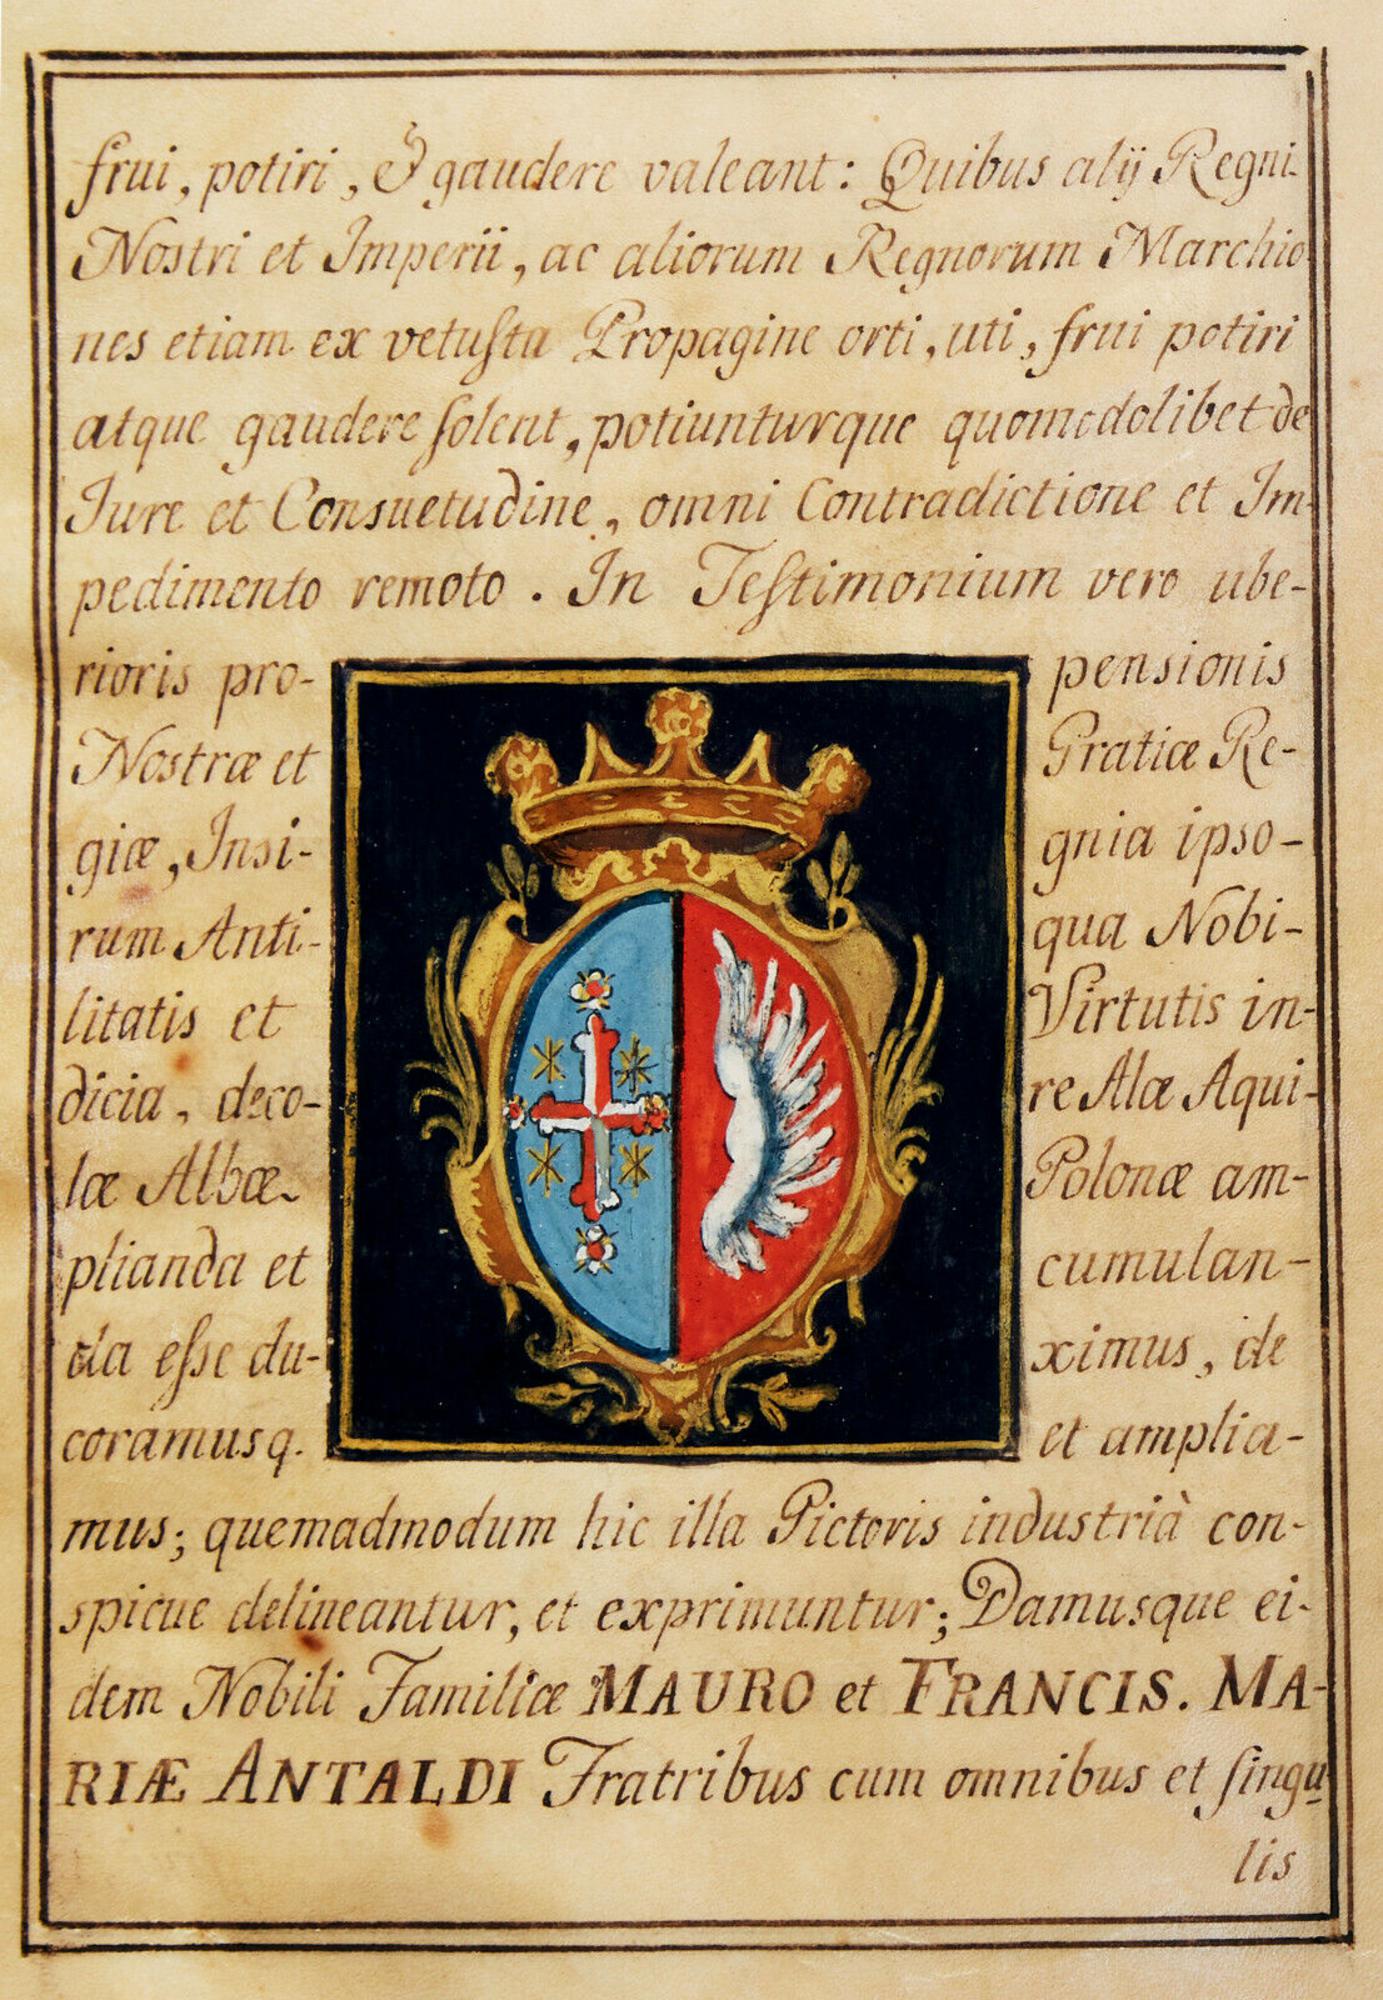 frui, potiri, & gaudere valeant: Quibus alij Regni
Nostri et Imperii, ac aliorum Regnorum Marchio
nes etiam ex vetuſta Propagine orti, uti, frui potiri
atque gaudere ſolent, potiunturque quomodolibet de
Jure et Consuetudine, omni Contradictione et Im-
pedimento remoto. In Teſtimonium vero ube-
rioris pro- pensionis
Nostræ et Gratiæ Re-
giæ, Insi- gnia ipso-
rum Anti- qua Nobi-
litatis et Virtutis in-
dicia, deco- re Alæ Aqui-
læ Albæ Polonæ am-
plianda et cumulan-
da eſse du- ximus, de
coramusq. et amplia-
mus; quemadmodum hic illa Pictoris industrià con-
spicue delineantur, et exprimuntur; Damusque ei-
dem Nobili Familiæ MAURO et FRANCIS. MA-
RIÆ ANTALDI Fratribus cum omnibus et ſingu
lis